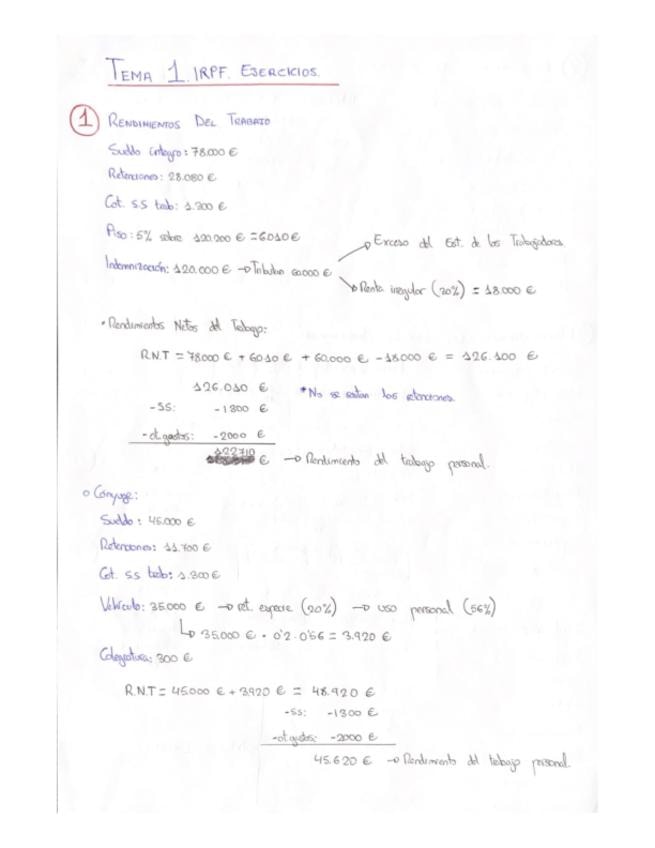 TEMA 1. IRPF. EJERCICIOS.
1 RENDIMIENTOS DEL TRABAJO
Sueldo íntegro: 78.000 €
Retenciones: 28.080 €
Cot. s.s trab: 1.300 €
Piso: 5% sobre 120.200 € = 6010 €
Exceso del Est. de los Trabajadores
Indemnización: 120.000 € → Tributan 60.000 €
Renta irregular (30%) = 18.000 €
• Rendimientos Netos del Trabajo:
R.N.T = 78000 € + 6010 € + 60.000 € - 18000 € = 126.100 €
126.010 € *No se restan las retenciones.
-SS: -1300 €
-ot.gastos: -2000 €
122710 € → Rendimiento del trabajo personal.
o Cónyuge:
Sueldo: 45.000 €
Retenciones: 11.700 €
Cot. s.s trab: 1.300 €
Vehículo: 35.000 € → ret. especie (20%) → uso personal (56%)
↳ 35.000 € · 0'2 · 0'56 = 3.920 €
Colegiatura: 300 €
R.N.T = 45000 € + 3920 € = 48.920 €
-SS: -1300 €
-ot.gastos: -2000 €
45.620 € → Rendimiento del trabajo personal.